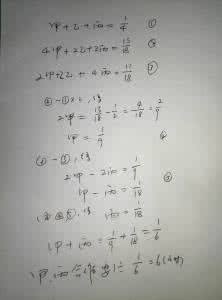 1甲+乙+丙=1/4 ①
4甲+2乙+2丙=13/18 ⑥
2甲+2乙+4丙=11/18 ⑦
⑥-①×2, 得
2甲=13/18-1/2=4/18=2/9
1甲=1/9
⑥-⑦, 得
2甲-2丙=1/9
1甲-丙=1/18
1丙=1/18
1甲+丙=1/9+1/18=1/6
甲、丙合作要1÷1/6=6(小时)